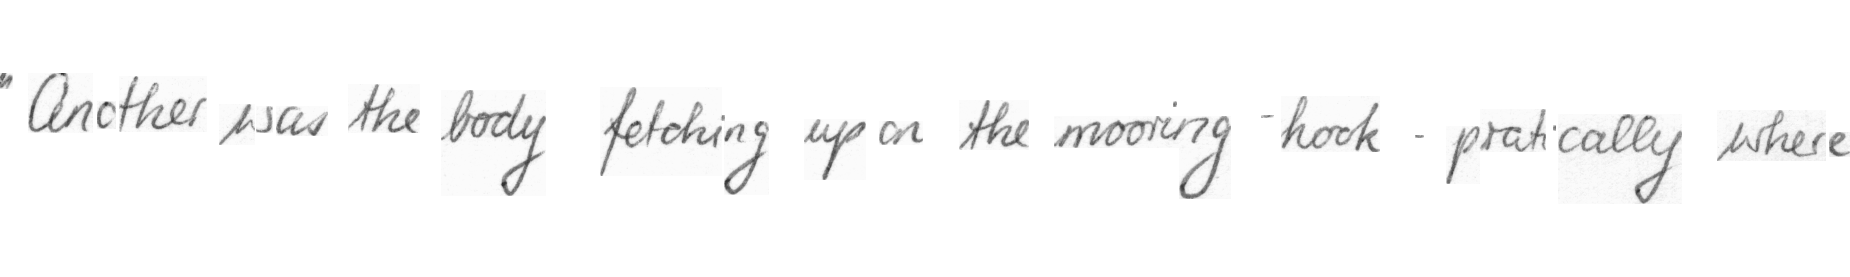 "Another was the body fetching up on the mooring -hook - pratically where